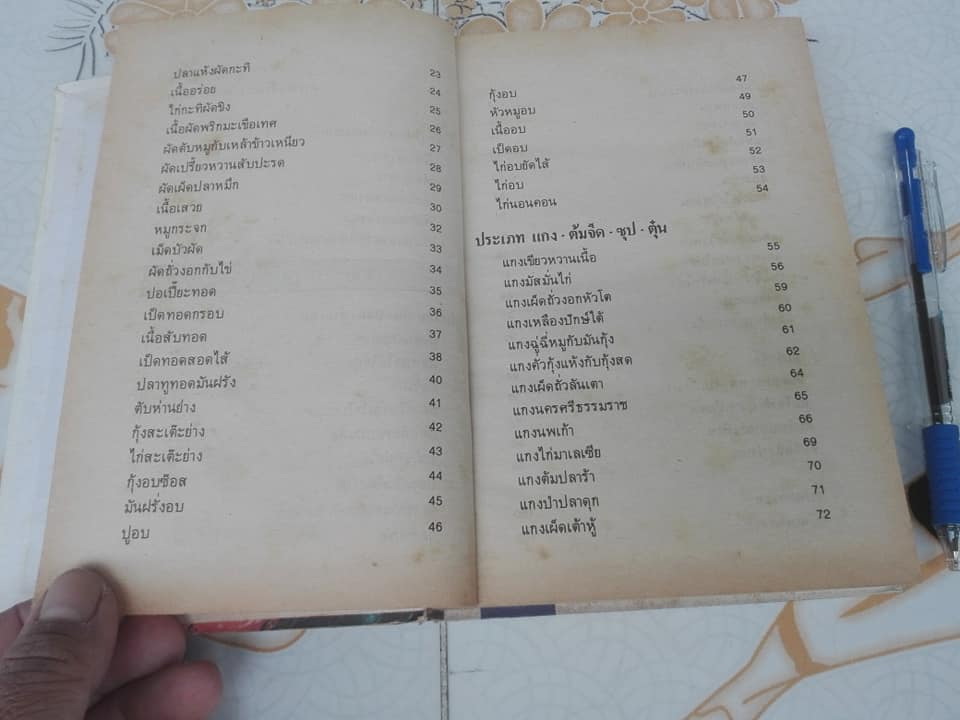 ปลาแห้งผัดกะทิ 23
เนื้ออร่อย 24
ไก่กะทิผัดขิง 25
เนื้อผัดพริกมะเขือเทศ 26
ผัดตับหมูกับเหล้าข้าวเหนียว 27
ผัดเปรี้ยวหวานสับปะรด 28
ผัดเผ็ดปลาหมึก 29
เนื้อเสวย 30
หมูกระจก 32
เม็ดบัวผัด 33
ผัดถั่วงอกกับไข่ 34
ปอเปี๊ยะทอด 35
เป็ดทอดกรอบ 36
เนื้อสับทอด 37
เป็ดทอดสอดไส้ 38
ปลาทูทอดมันฝรั่ง 40
ตับห่านย่าง 41
กุ้งสะเต๊ะย่าง 42
ไก่สะเต๊ะย่าง 43
กุ้งอบซ๊อส 44
มันฝรั่งอบ 45
ปูอบ 46
กุ้งอบ 47
หัวหมูอบ 49
เนื้ออบ 50
เป็ดอบ 51
ไก่อบยัดไส้ 52
ไก่อบ 53
ไก่นอนคอน 54
ประเภท แกง - ต้มจืด - ซุป - ตุ๋น
แกงเขียวหวานเนื้อ 55
แกงมัสมั่นไก่ 56
แกงเผ็ดถั่วงอกหัวโต 59
แกงเหลืองปักษ์ใต้ 60
แกงฉู่ฉี่หมูกับมันกุ้ง 61
แกงคั่วกุ้งแห้งกับกุ้งสด 62
แกงเผ็ดถั่วลันเตา 64
แกงนครศรีธรรมราช 65
แกงนพเก้า 66
แกงไก่มาเลเซีย 69
แกงต้มปลาร้า 70
แกงป่าปลาดุก 71
แกงเผ็ดเต้าหู้ 72